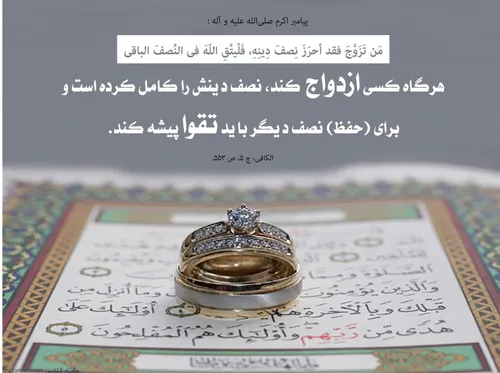 پیامبر اکرم صلی‌الله علیه و آله :
مَن تَزَوَّجَ فقد أحرَزَ نِصفَ دِینِهِ، فَلْیتَّقِ اللّهَ فی النِّصفِ الباقی
هرگاه کسی ازدواج کند، نصف دینش را کامل کرده است و
برای (حفظ) نصف دیگر باید تقوا پیشه کند.
الکافی، ج ۵، ص ۵۵۳.
الصَّلوةَ وَمِمَّا
وَالَّذِينَ يُؤْمِنُونَ وَمَا أُنزِلَ مِن
قَبْلِكَ وَبِالْآخِرَةِ هُمْ أُولَٰئِكَ عَلَىٰ
هُدًى مِّن رَّبِّهِمْ وَأُولَٰئِكَ هُمُ الْمُفْلِحُونَ